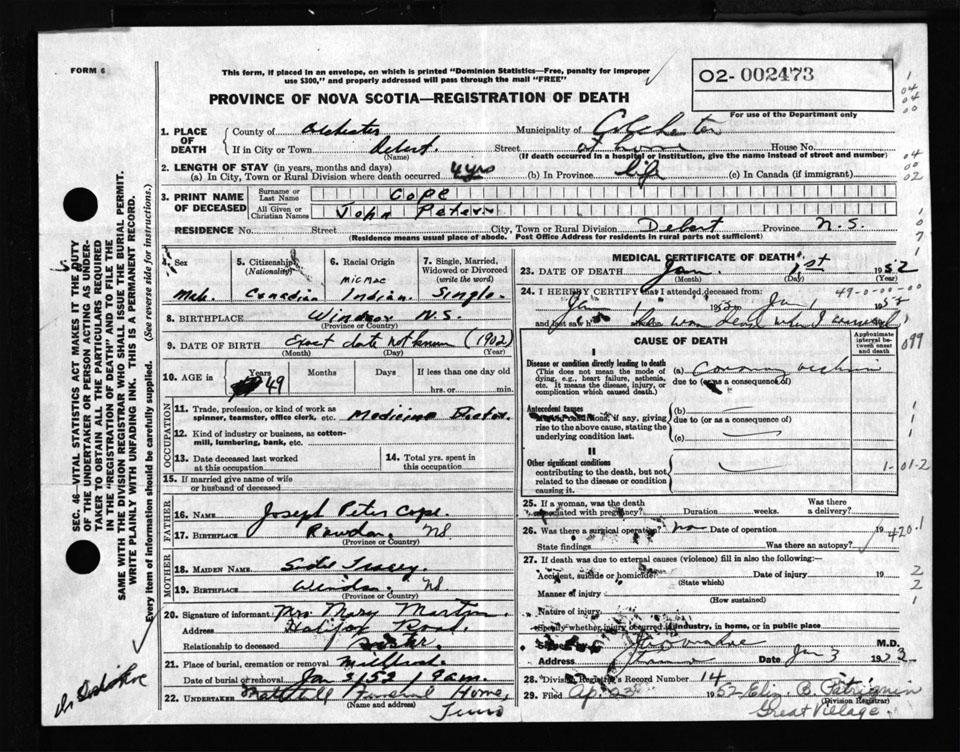 FORM 6
This form, if placed in an envelope, on which is printed "Dominion Statistics—Free, penalty for improper
use $300," and properly addressed will pass through the mail "FREE"
O2- 002473
For use of the Department only
PROVINCE OF NOVA SCOTIA—REGISTRATION OF DEATH
1. PLACE OF DEATH
County of Colchester Municipality of Colchester
If in City or Town Debert. Street at home House No.
(Name) (If death occurred in a hospital or institution, give the name instead of street and number)
2. LENGTH OF STAY (in years, months and days)
(a) In City, Town or Rural Division where death occurred 4 yrs (b) In Province life (c) In Canada (if immigrant)
3. PRINT NAME OF DECEASED
Surname or Last Name Cope
All Given or Christian Names John Peter
RESIDENCE No. Street City, Town or Rural Division Debert Province N.S.
(Residence means usual place of abode. Post Office Address for residents in rural parts not sufficient)
4. Sex Male
5. Citizenship (Nationality) Canadian
6. Racial Origin micmac Indian
7. Single, Married, Widowed or Divorced (write the word) Single
8. BIRTHPLACE Windsor N.S.
(Province or Country)
9. DATE OF BIRTH Exact date not known (1902)
(Month) (Day) (Year)
10. AGE in Years Months Days If less than one day old
49 hrs. or min.
OCCUPATION
11. Trade, profession, or kind of work as spinner, teamster, office clerk, etc. Medicine
12. Kind of industry or business, as cotton-mill, lumbering, bank, etc.
13. Date deceased last worked at this occupation
14. Total yrs. spent in this occupation
15. If married give name of wife or husband of deceased
FATHER
16. NAME Joseph Peter Cope
17. BIRTHPLACE Rawdon NS.
(Province or Country)
MOTHER
18. MAIDEN NAME
19. BIRTHPLACE Windsor NS
(Province or Country)
20. Signature of informant Mrs Mary Martin
Address Halifax Road
Relationship to deceased sister
21. Place of burial, cremation or removal Millbrook
Date of burial or removal Jan 3/52 / 9 am.
22. UNDERTAKER Funeral Home,
(Name and address) Truro
MEDICAL CERTIFICATE OF DEATH
23. DATE OF DEATH Jan. 1st 1952
(Month) (Day)
24. I HEREBY CERTIFY that I attended deceased from: 49-0-00-00
Jan 1 1952 Jan 1 1952
and last saw h was dead when I arrived
CAUSE OF DEATH
Approximate interval between onset and death
099
I
Disease or condition directly leading to death
(This does not mean the mode of dying, e.g., heart failure, asthenia, etc. It means the disease, injury, or complication which caused death.)
(a) Coronary
due to (or as a consequence of)
Antecedent causes
Morbid conditions, if any, giving rise to the above cause, stating the underlying condition last.
(b)
due to (or as a consequence of)
(c)
II
Other significant conditions
contributing to the death, but not related to the disease or condition causing it.
1-01-2
25. If a woman, was the death associated with pregnancy? Duration weeks. Was there a delivery?
26. Was there a surgical operation? no Date of operation 19
State findings Was there an autopsy?
420.1
27. If death was due to external causes (violence) fill in also the following:—
Accident, suicide or homicide? Date of injury 19
(State which)
Manner of injury
(How sustained)
Nature of injury
Specify whether injury occurred in industry, in home, or in public place
Signature M.D.
Address Truro Date Jan 3 1952
28. Division Registrar's Record Number 14
29. Filed Ap. 23 1952
(Division Registrar)
Great Village.
SEC. 46—VITAL STATISTICS ACT MAKES IT THE DUTY
OF THE UNDERTAKER OR PERSON ACTING AS UNDER-
TAKER TO OBTAIN ALL THE PARTICULARS REQUIRED
IN THE "REGISTRATION OF DEATH" AND TO FILE THE
SAME WITH THE DIVISION REGISTRAR WHO SHALL ISSUE THE BURIAL PERMIT.
WRITE PLAINLY WITH UNFADING INK. THIS IS A PERMANENT RECORD.
Every item of information should be carefully supplied. (See reverse side for instructions.)